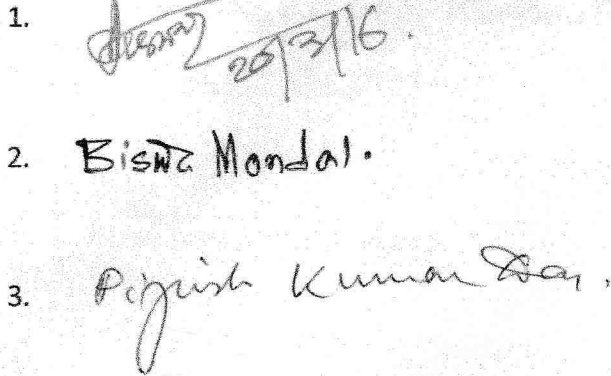 1. 20/3/16.
2. Biswa Mondal.
3. Pijush Kumar Das.